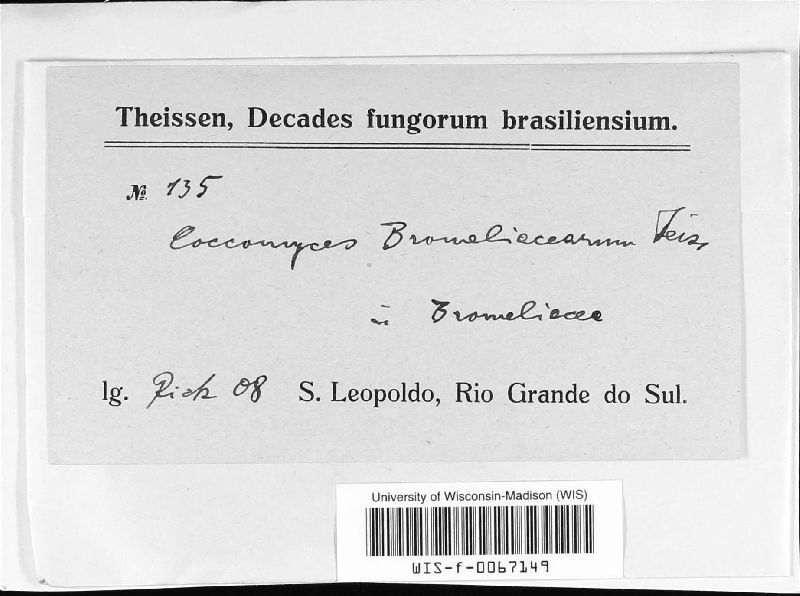 Theissen, Decades fungorum brasiliensium.
№ 135
Coccomyces Bromeliacearum Theis.
in Bromeliacee
lg. Rick 08 S. Leopoldo, Rio Grande do Sul.
University of Wisconsin-Madison (WIS)
WIS-f-0067149